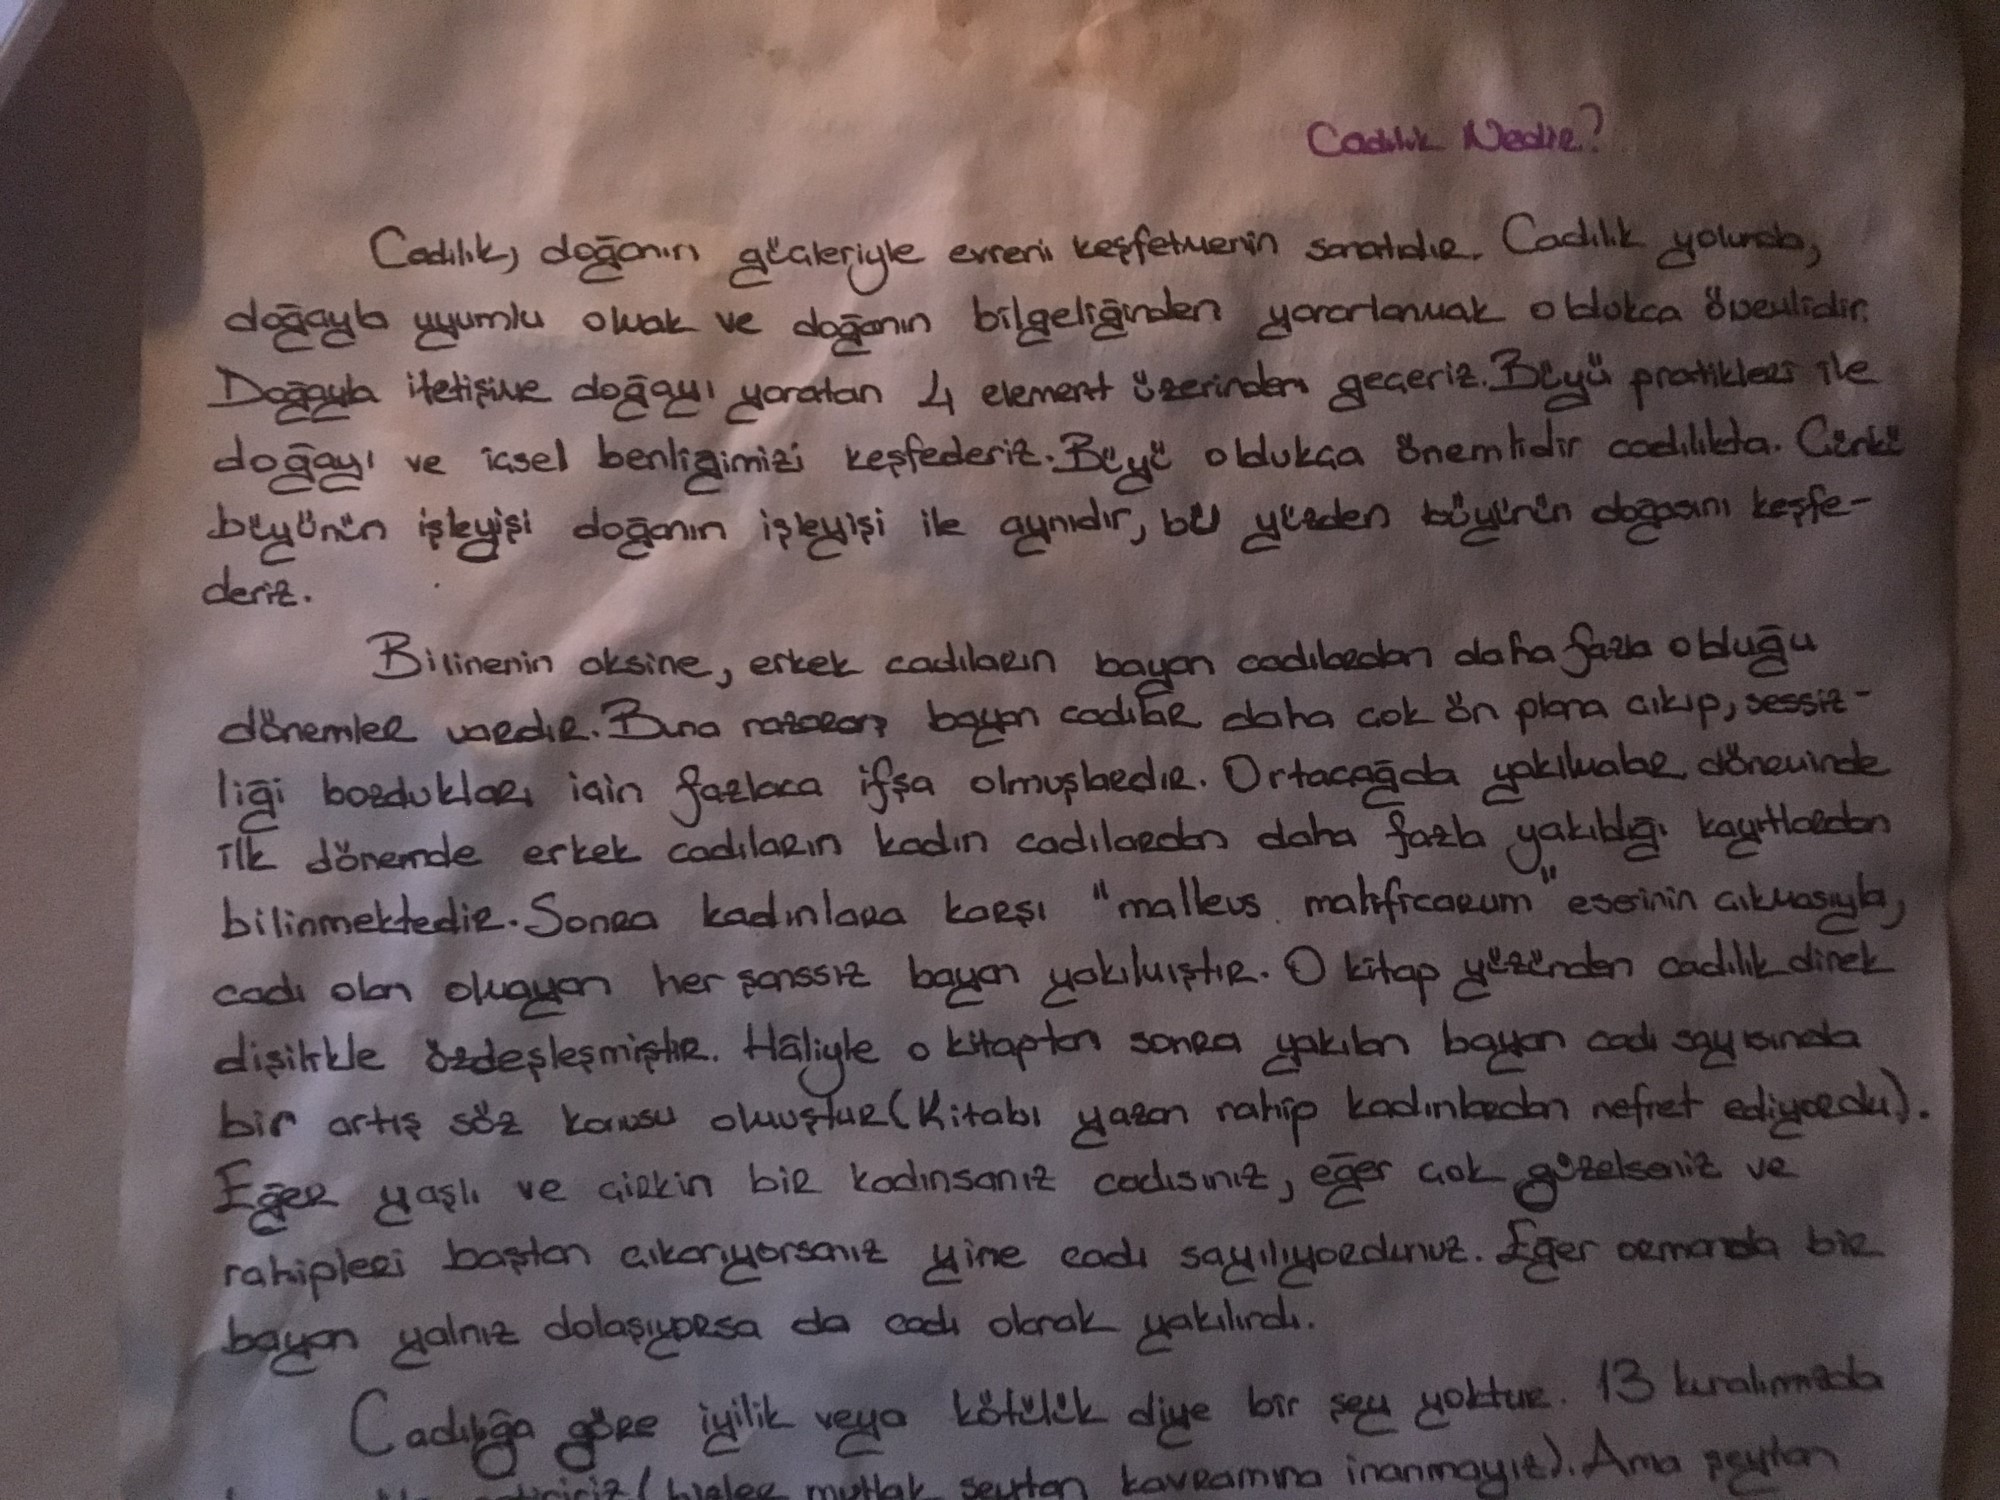 Cadılık Nedir?
Cadılık, doğanın güçleriyle evreni keşfetmenin sanatıdır. Cadılık yolunda,
doğayla uyumlu olmak ve doğanın bilgeliğinden yararlanmak oldukca önemlidir.
Doğayla iletişime doğayı yaratan 4 element üzerinden geçeriz. Büyü pratikleri ile
doğayı ve içsel benligimizi keşfederiz. Büyü oldukca önemlidir cadılıkta. Cünkü
büyünün işleyişi doğanın işleyişi ile aynıdır, bu yüzden büyünün doğasını keşfe-
deriz.
Bilinenin aksine, erkek cadıların bayan cadılardan daha fazla olduğu
dönemler vardır. Buna nazaran, bayan cadılar daha cok ön plana cıkıp, sessiz-
liği bozdukları icin fazlaca ifşa olmuşlardır. Ortacağda yakılmalar döneminde
ilk dönemde erkek cadıların kadın cadılardan daha fazla yakıldığı kayıtlardan
bilinmektedir. Sonra kadınlara karşı "malleus malificarum" eserinin cıkmasıyla,
cadı olan olmayan her şanssız bayan yakılmıştır. O kitap yüzünden cadılık direk
dişilikle özdeşleşmiştir. Hâliyle o kitaptan sonra yakılan bayan cadı sayısında
bir artış söz konusu olmuştur (Kitabı yazan rahip kadınlardan nefret ediyordu).
Eğer yaşlı ve cirkin bir kadınsanız cadısınız, eğer cok güzelseniz ve
rahipleri baştan cıkarıyorsanız yine cadı sayılıyordunuz. Eğer ormanda bir
bayan yalnız dolaşıyorsa da cadı olarak yakılırdı.
Cadılığa göre iyilik veya kötülük diye bir şey yoktur. 13 kuralımızda
(bizler mutlak şeytan kavramına inanmayız). Ama şeytan